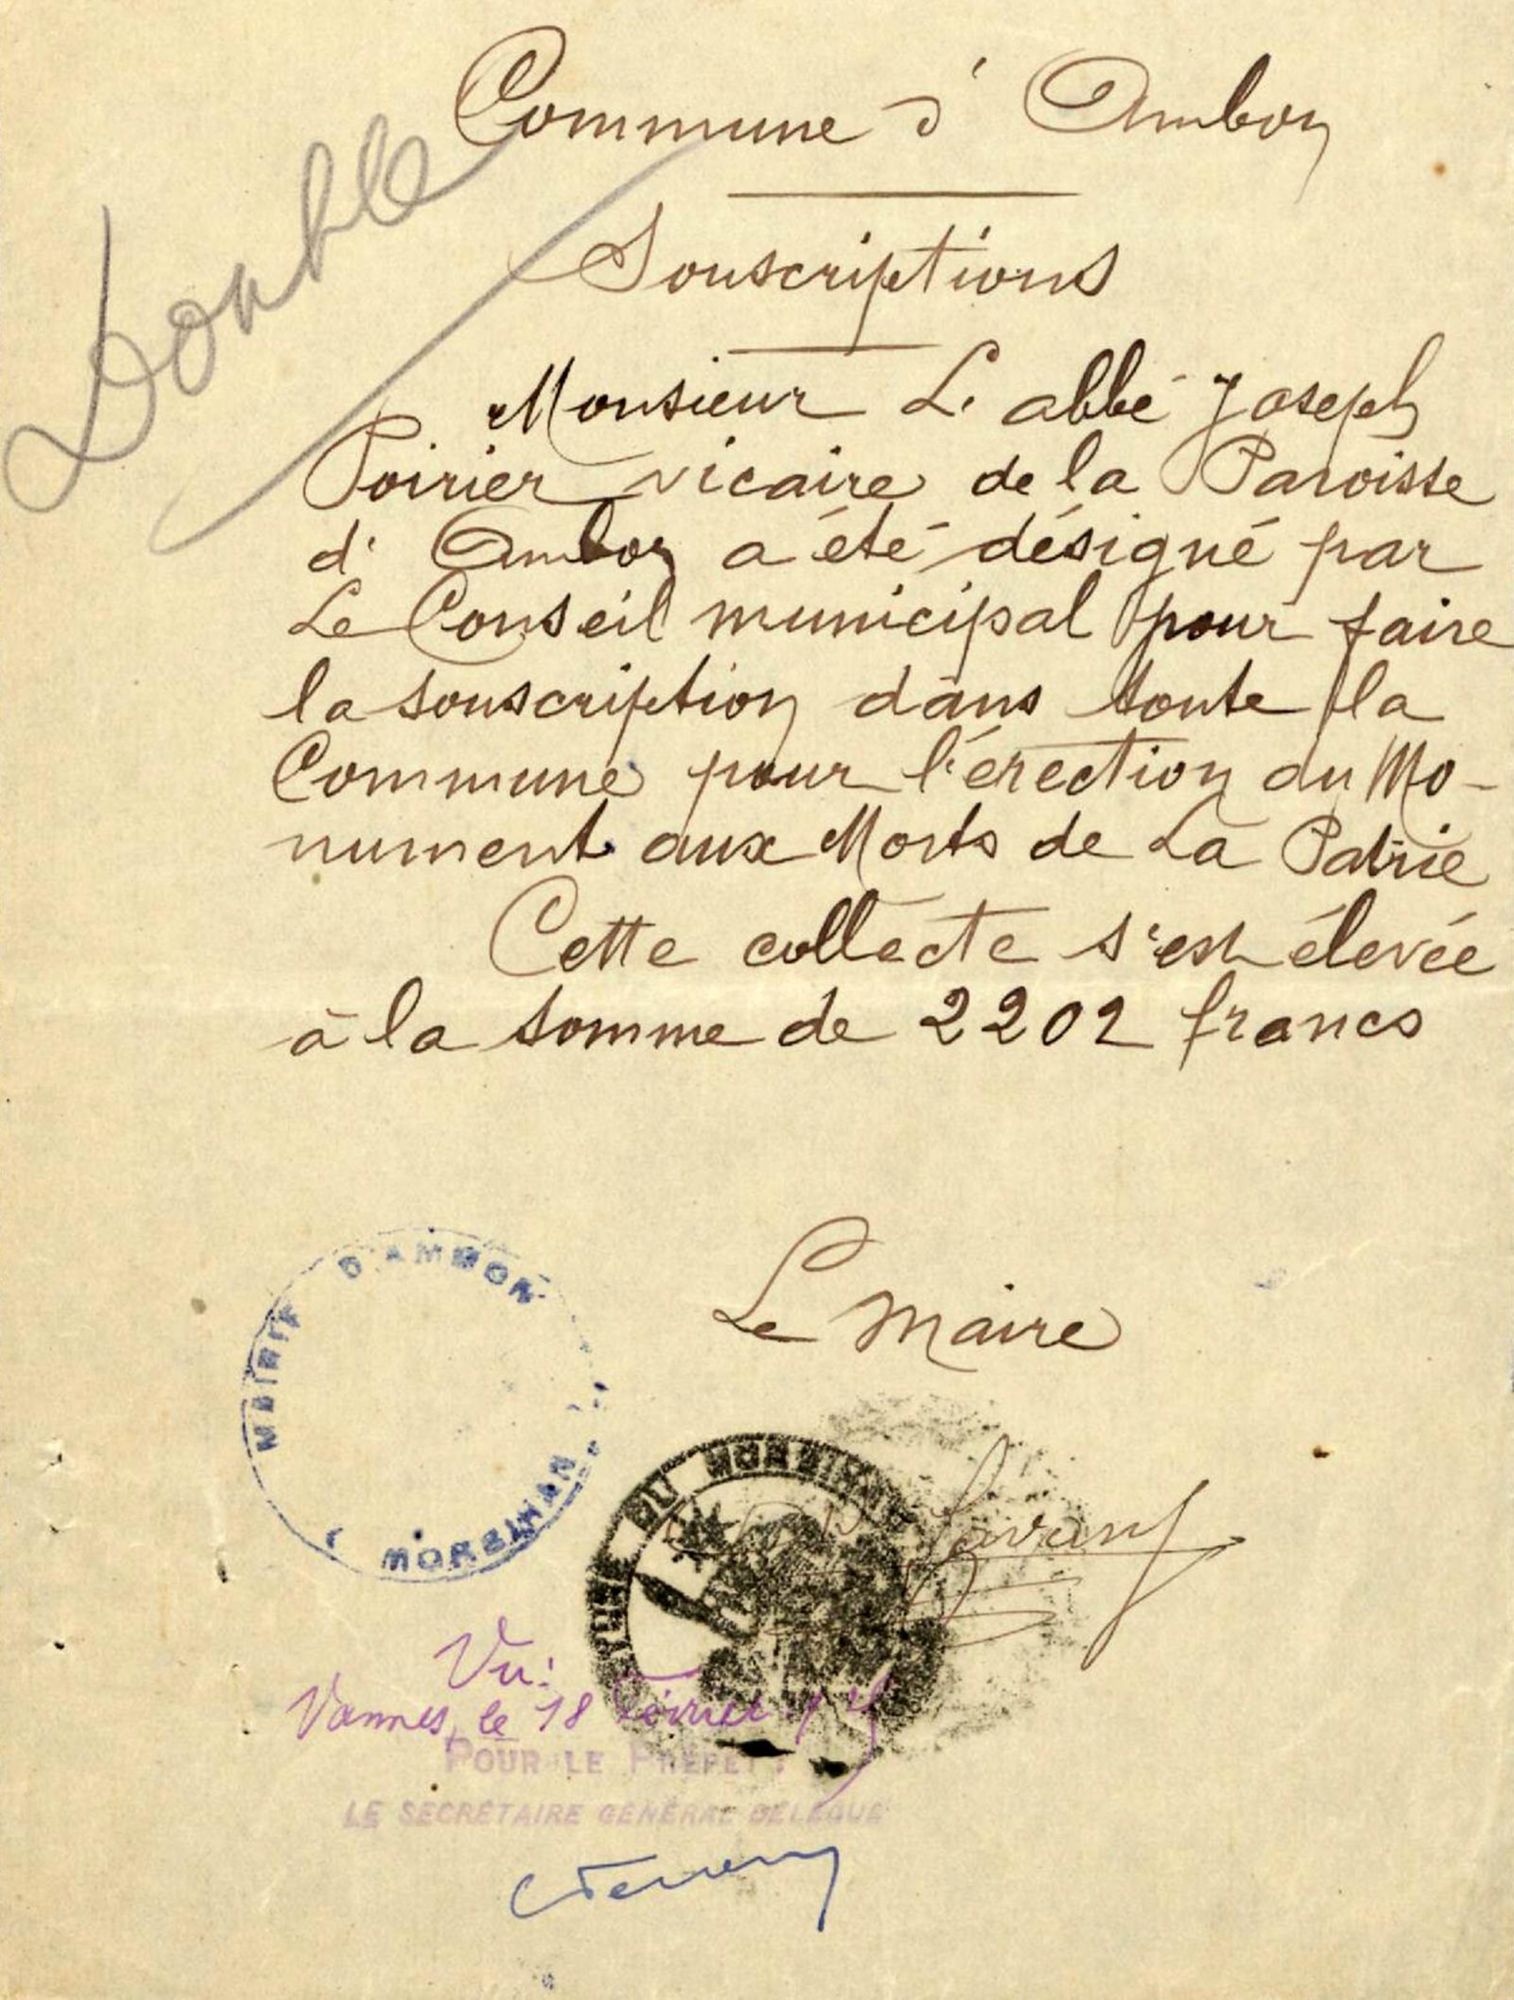 Double
Commune d'Ambon
Souscriptions
Monsieur L'abbé Joseph
Poirier vicaire de la Paroisse
d'Ambon a été désigné par
Le Conseil municipal pour faire
la souscription dans toute la
Commune pour l'érection du Mo-
nument aux Morts de La Patrie
Cette collecte s'est élevée
à la somme de 2202 francs
Le Maire
MAIRIE D'AMBON
MORBIHAN
DU MORBIHAN
Vu:
Vannes, le 18 février
POUR LE PRÉFET:
LE SECRÉTAIRE GÉNÉRAL DÉLÉGUÉ